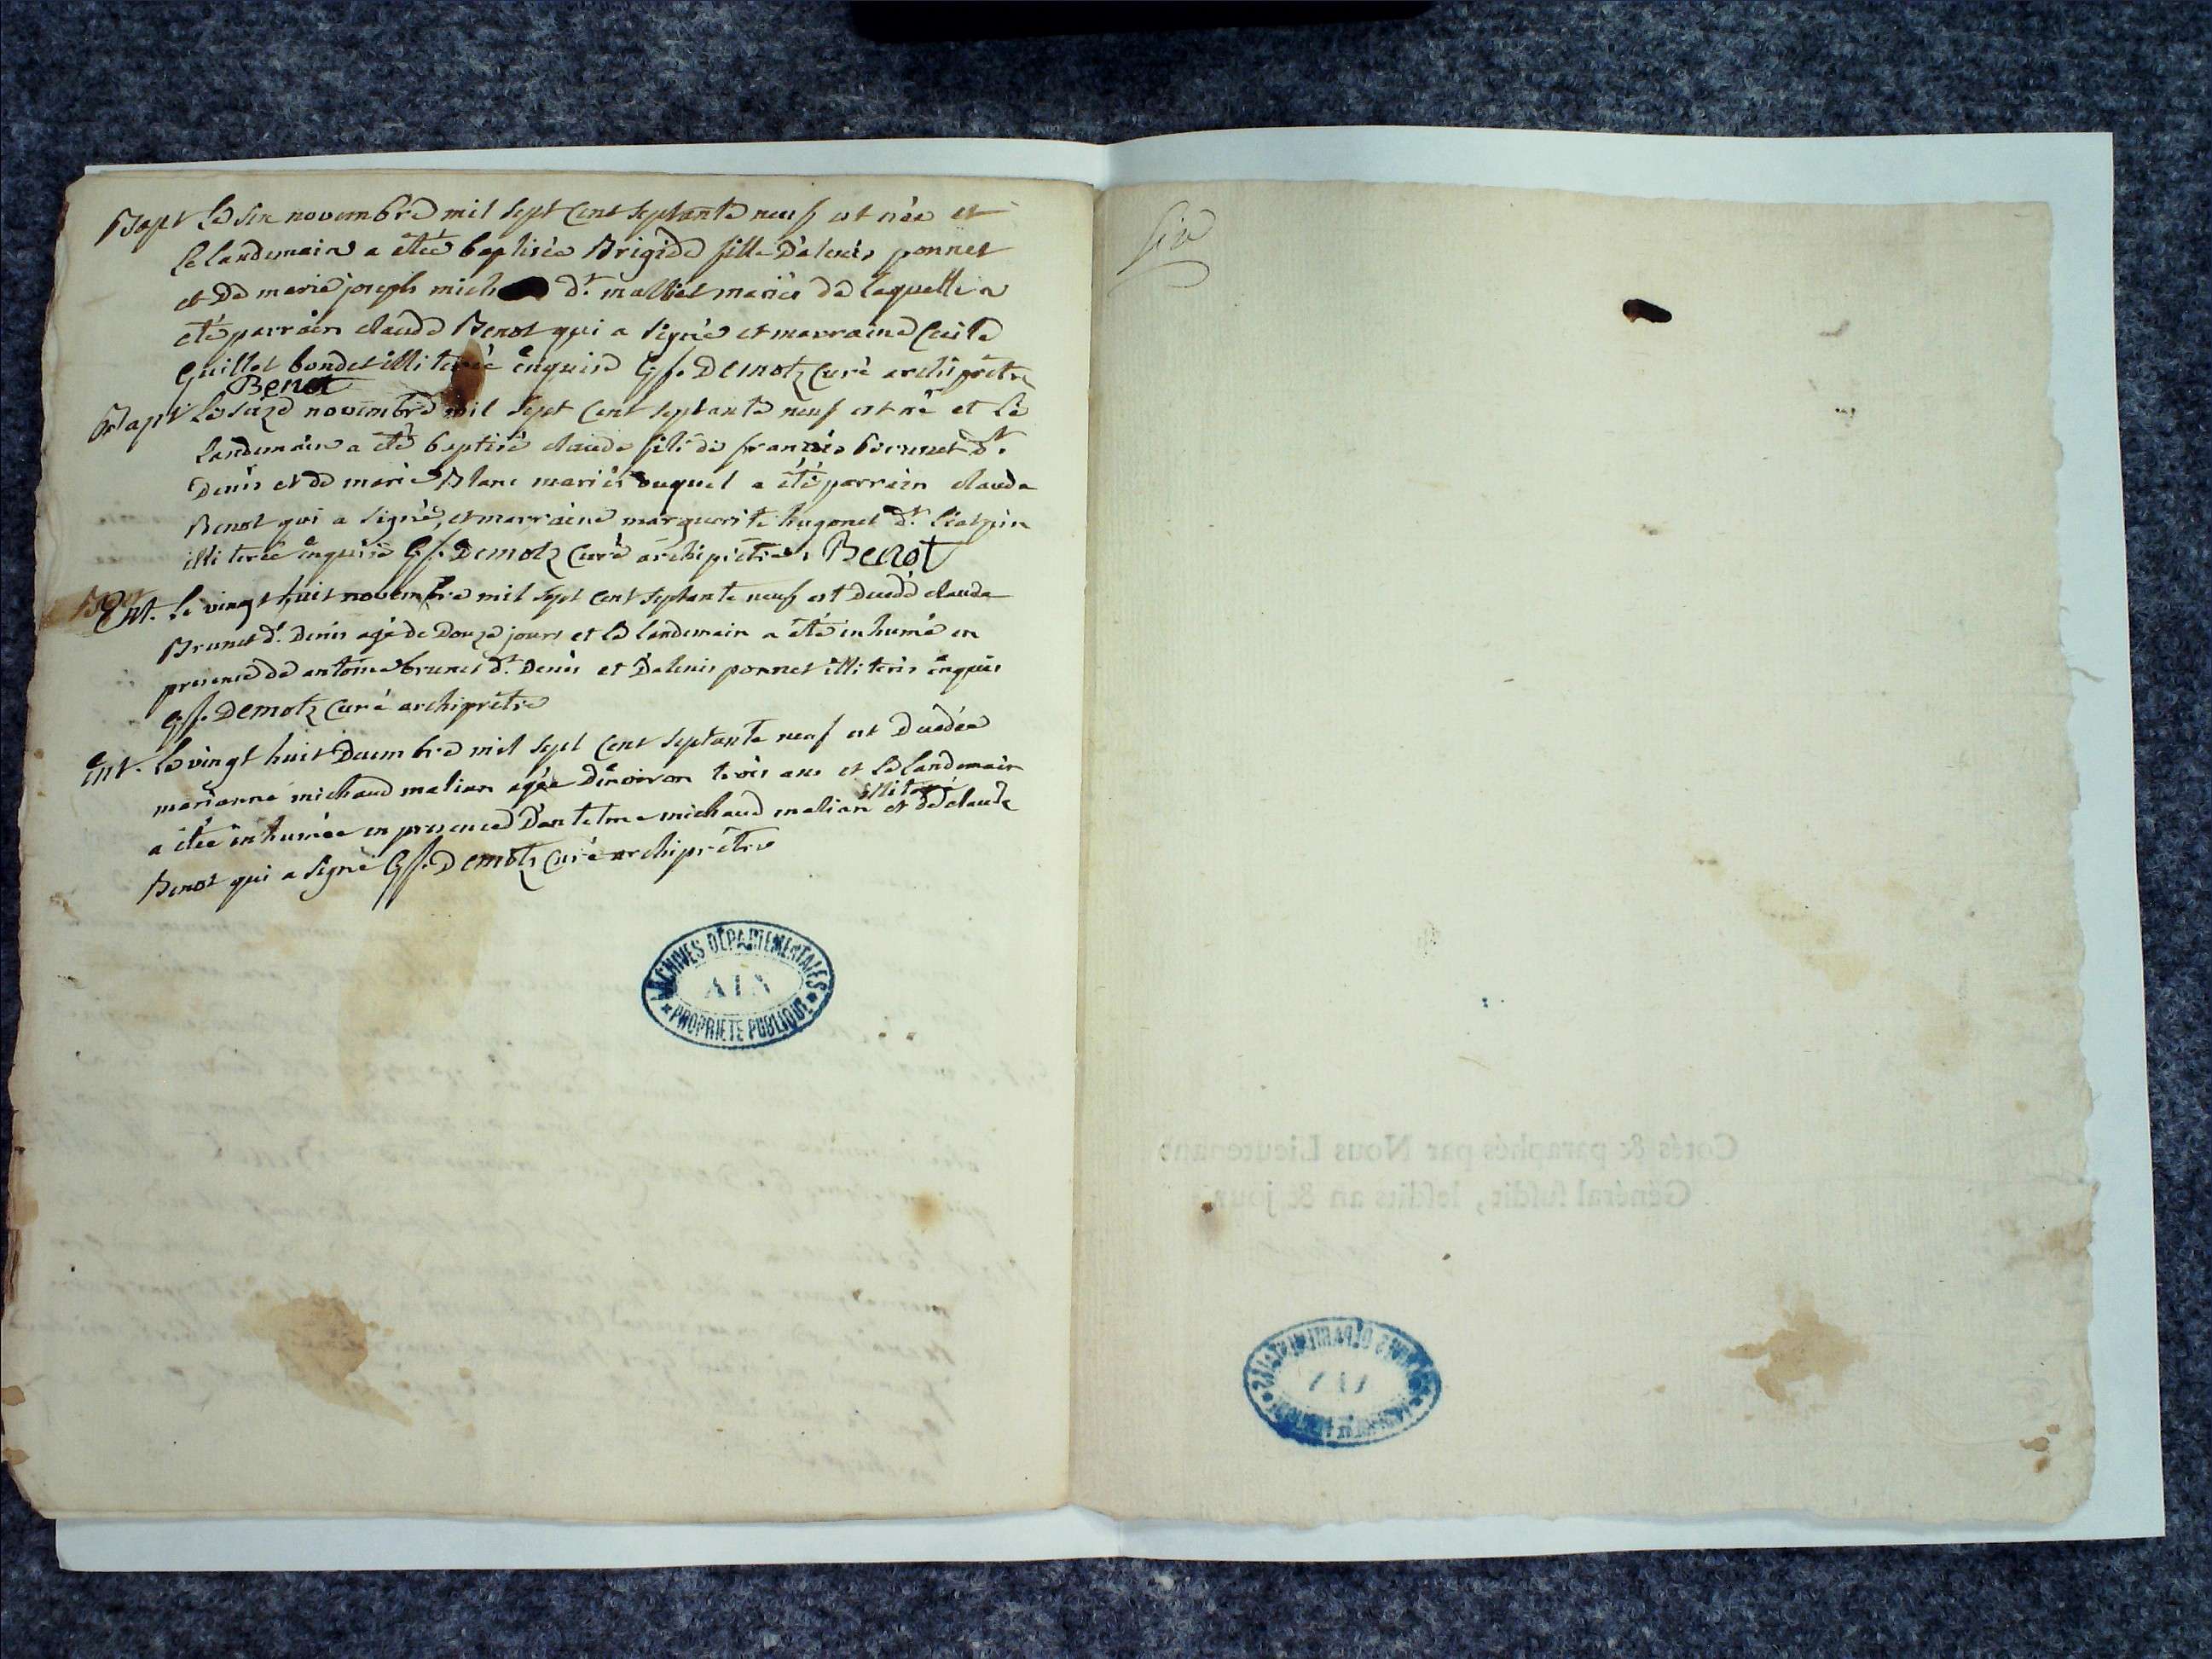 Bapt Le six novembre mil sept cent septante neuf est née et
le landemain a étée baptisée Brigide fille d'alexis ponnet
et de marie joseph mich dt. malliet mariés de laquelle a
été parrain claude Benot qui a signé et marraine Cecile
Guillet bondet illiterée enquise Gff. Demotz Curé archiprêtre
Benot
Bapt Le seize novembre mil sept cent septante neuf est né et le
landemain a été baptisé claude fils de françois brunet dt.
Denis et de marie Blanc mariés duquel a été parrain claude
Benot qui a signé, et marraine marguerite hugonet dt.
illiterée enquise Gff. Demotz Curé archiprêtre, Benot
Ent. Le vingt huit novembre mil sept cent septante neuf est decedé claude
Brunet dt. Denis agé de Douze jours et le landemain a été inhumé en
presence de antoine brunet dt. Denis et D'alexis ponnet illiterés enquis
Gff. Demotz Curé archiprêtre
Ent. Le vingt huit Decembre mil sept cent septante neuf est Decedée
marianne michaud malian agée Dinviron trois ans et le landemain
illiteré
a étée inhumée en presence D'antelme michaud malian et de claude
Benot qui a signé Gff. Demotz Curé archiprêtre
ARCHIVES DÉPARTEMENTALES
AIN
PROPRIÉTÉ PUBLIQUE
six
Cotés & paraphés par Nous Lieutenant
Général susdit, lesdits an & jour